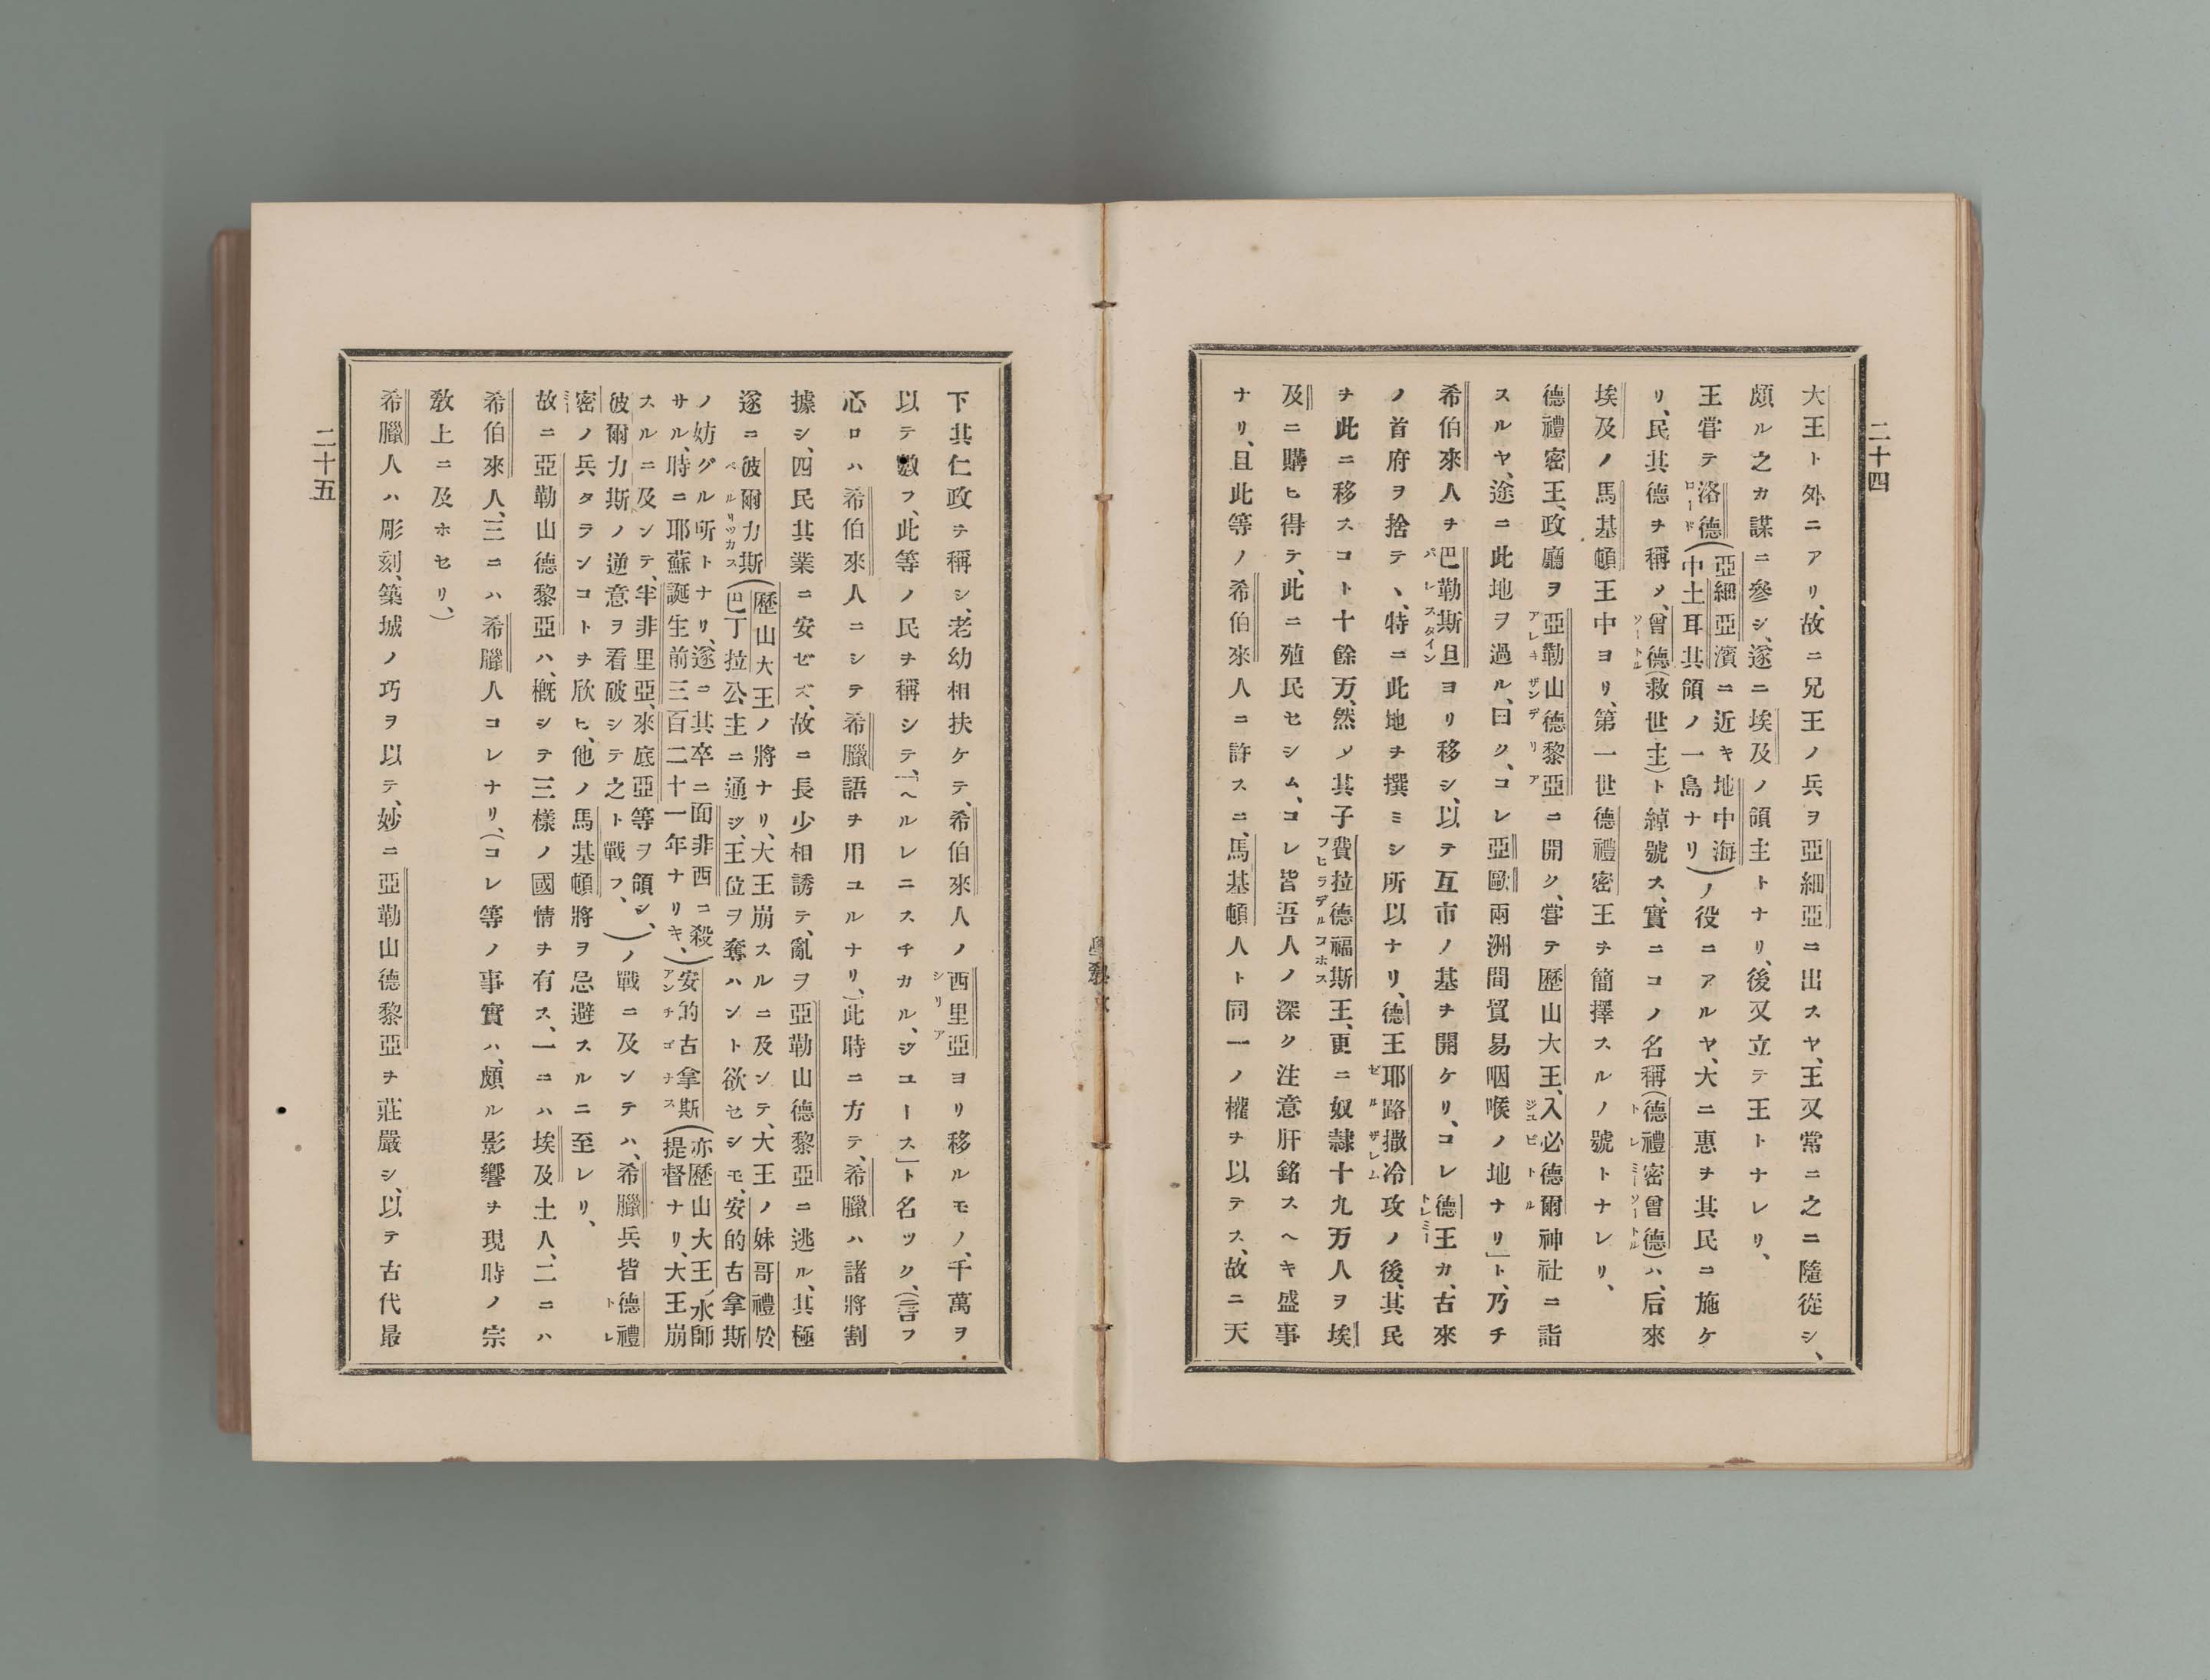 二十四
大王ト外ニアリ、故ニ兄王ノ兵ヲ亞細亞ニ出スヤ、王又常ニ之ニ隨從シ、
頗ル之カ謀ニ參シ、遂ニ埃及ノ領主トナリ、後又立テ王トナレリ、
王嘗テ洛德(亞細亞濱ニ近キ地中海中土耳其領ノ一島ナリ)ノ役ニアルヤ、大ニ惠ヲ其民ニ施ケ
ロード
リ、民其德ヲ稱ノ、曾德(救世主)ト綽號ス、實ニコノ名稱(德禮密曾德)ハ、后來
ソートル
トレミーソートル
埃及ノ馬基頓王中ヨリ、第一世德禮密王ヲ簡擇スルノ號トナレリ、
德禮密王、政廳ヲ亞勒山德黎亞ニ開ク、嘗テ歷山大王、入必德爾神社ニ詣
アレキザンデリア
ジユピトル
スルヤ、途ニ此地ヲ過ル、曰ク、コレ亞歐兩洲間貿易咽喉ノ地ナリ」ト、乃チ
希伯來人ヲ巴勒斯旦ヨリ移シ、以テ互市ノ基ヲ開ケリ、コレ德王カ、古來
パレスタイン
トレミー
ノ首府ヲ捨テヽ、特ニ此地ヲ撰ミシ所以ナリ、德王耶路撒冷攻ノ後、其民
ゼルザレム
ヲ此ニ移スコト十餘万、然ノ其子費拉德福斯王、更ニ奴隷十九万人ヲ埃
フヒラデルコホス
及ニ購ヒ得テ、此ニ殖民セシム、コレ皆吾人ノ深ク注意肝銘スヘキ盛事
ナリ、且此等ノ希伯來人ニ許スニ、馬基頓人ト同一ノ權ヲ以テス、故ニ天
下其仁政ヲ稱シ、老幼相扶ケテ、希伯來人ノ西里亞ヨリ移ルモノ、千萬ヲ
シリア
以テ數フ、此等ノ民ヲ稱シテ、「ヘルレニスチカル、ジユース」ト名ツク、(言フ
心ロハ希伯來人ニシテ希臘語ヲ用ユルナリ、)此時ニ方テ、希臘ハ諸將割
據シ、四民其業ニ安ゼズ、故ニ長少相誘テ、亂ヲ亞勒山德黎亞ニ逃ル、其極
遂ニ彼爾力斯(歷山大王ノ將ナリ、大王崩スルニ及ンテ、大王ノ妹哥禮於
巴丁拉公主ニ通ジ、王位ヲ奪ハント欲セシモ、安的古拿斯
ペルリッカス
ノ妨グル所トナリ、遂ニ其卒ニ面非西ニ殺
サル、時ニ耶蘇誕生前三百二十一年ナリキ、)安的古拿斯(亦歷山大王ノ水師
提督ナリ、大王崩
アンチゴナス
スルニ及ンテ、牢非里亞、來底亞等ヲ領シ、
彼爾力斯ノ逆意ヲ看破シテ之ト戰フ、)ノ戰ニ及ンテハ、希臘兵皆德禮
トレ
密ノ兵タランコトヲ欣ヒ、他ノ馬基頓將ヲ忌避スルニ至レリ、
ミー
故ニ亞勒山德黎亞ハ、槪シテ三樣ノ國情ヲ有ス、一ニハ埃及土人、二ニハ
希伯來人、三ニハ希臘人コレナリ、(コレ等ノ事實ハ、頗ル影響ヲ現時ノ宗
敎上ニ及ホセリ、)
希臘人ハ彫刻、築城ノ巧ヲ以テ、妙ニ亞勒山德黎亞ヲ莊嚴シ、以テ古代最
二十五